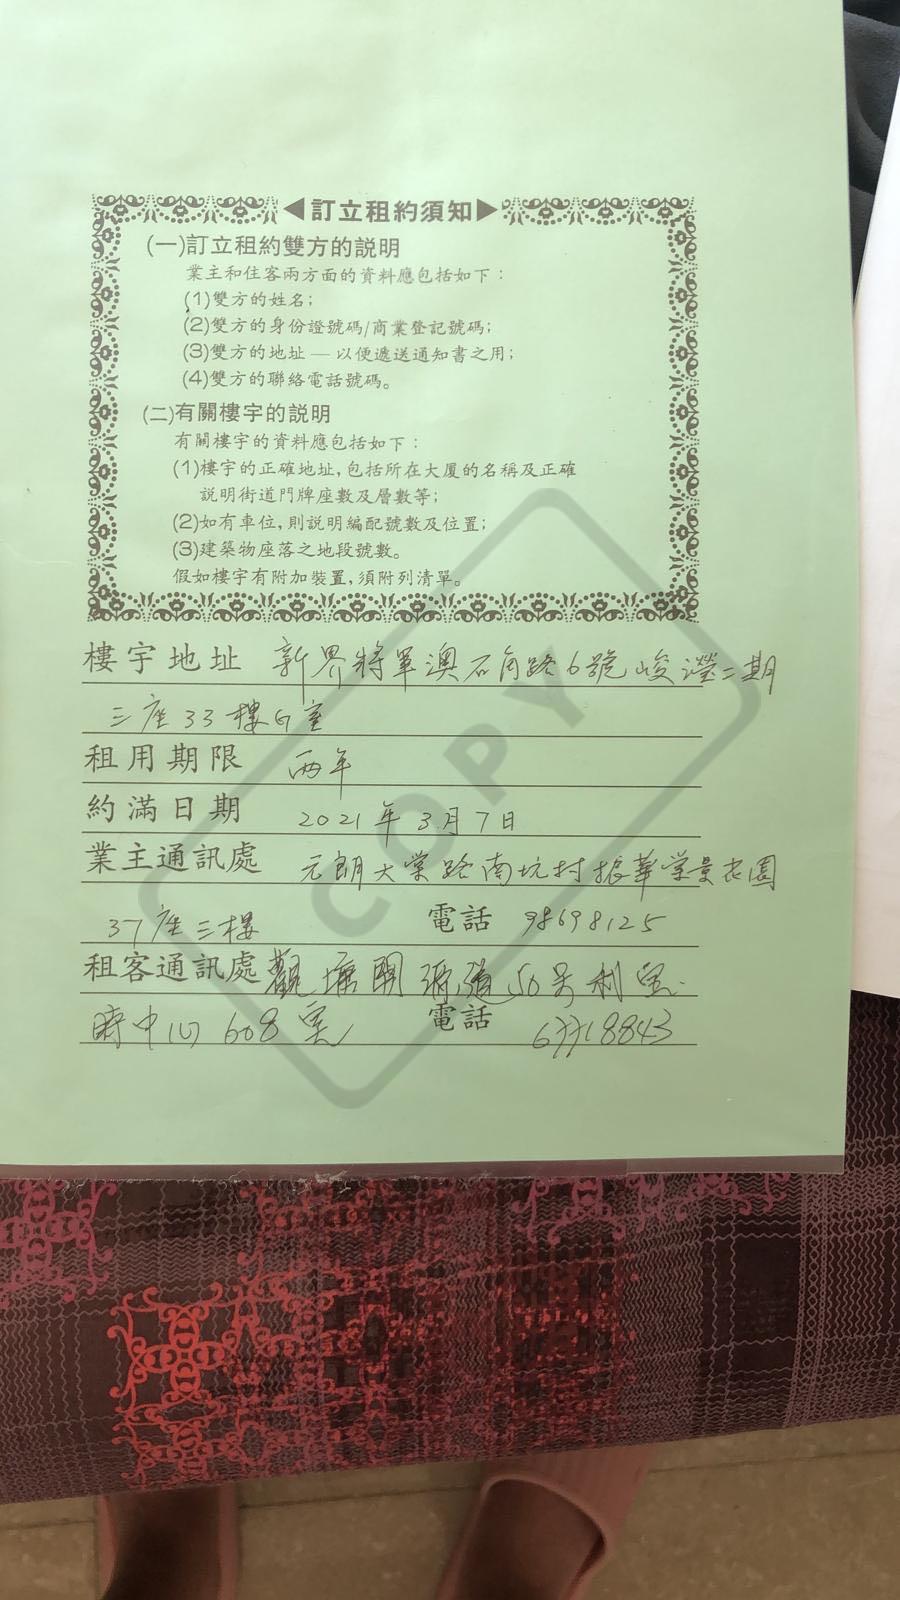 ◀訂立租約須知▶
(一)訂立租約雙方的説明
業主和住客兩方面的資料應包括如下：
(1)雙方的姓名；
(2)雙方的身份證號碼/商業登記號碼；
(3)雙方的地址 — 以便遞送通知書之用；
(4)雙方的聯絡電話號碼。
(二)有關樓宇的説明
有關樓宇的資料應包括如下：
(1)樓宇的正確地址，包括所在大廈的名稱及正確
説明街道門牌座數及層數等；
(2)如有車位，則説明編配號數及位置；
(3)建築物座落之地段號數。
假如樓宇有附加裝置，須附列清單。
樓宇地址 新界將軍澳石角路6號峻瀅二期
三座33樓G室
租用期限 兩年
約滿日期 2021年3月7日
業主通訊處 元朗大棠路南坑村振華學景花園
37座三樓 電話 98698125
租客通訊處 觀塘開源道50号利宝
時中心608室 電話 67718843
COPY